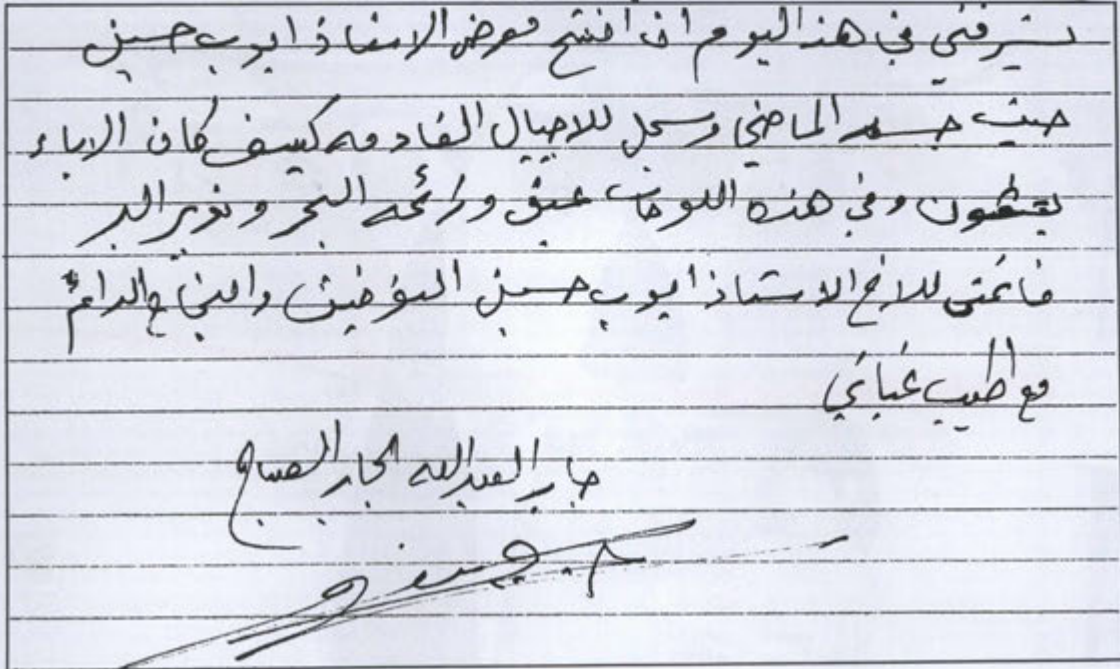 يشرفني في هذا اليوم ان افتتح معرض الاستاذ ايوب حسين
حيث جسد الماضي وسجل للاجيال القادمه كيف كان الاباء
يعيشون وفي هذه اللوحات عبق ورائحه البحر وغدير البر
فاتمنى للاخ الاستاذ ايوب حسين التوفيق والنجاح الدائم
مع اطيب تمنياتي
جابر العبدالله الجابر الصباح